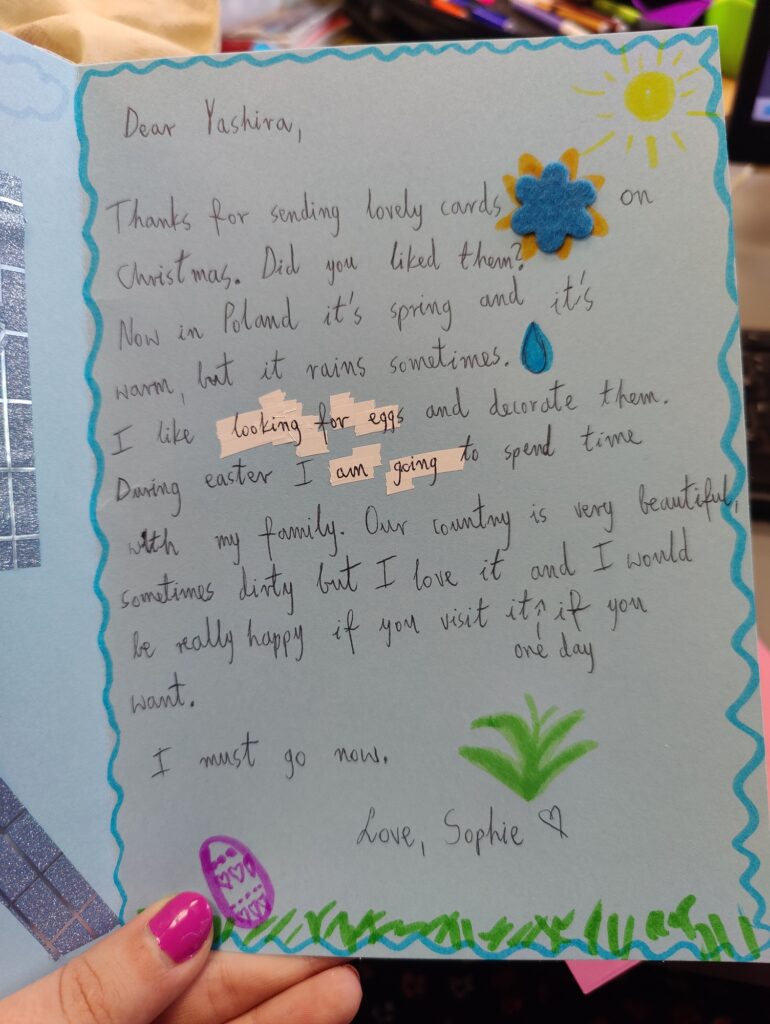 Dear Yashira,
Thanks for sending lovely cards on
Christmas. Did you liked them?
Now in Poland it's spring and it's
warm, but it rains sometimes.
I like looking for eggs and decorate them.
During easter I am going to spend time
with my family. Our country is very beautiful,
sometimes dirty but I love it and I would
be really happy if you visit it^, if you
one day
want.
I must go now.
Love, Sophie ♡